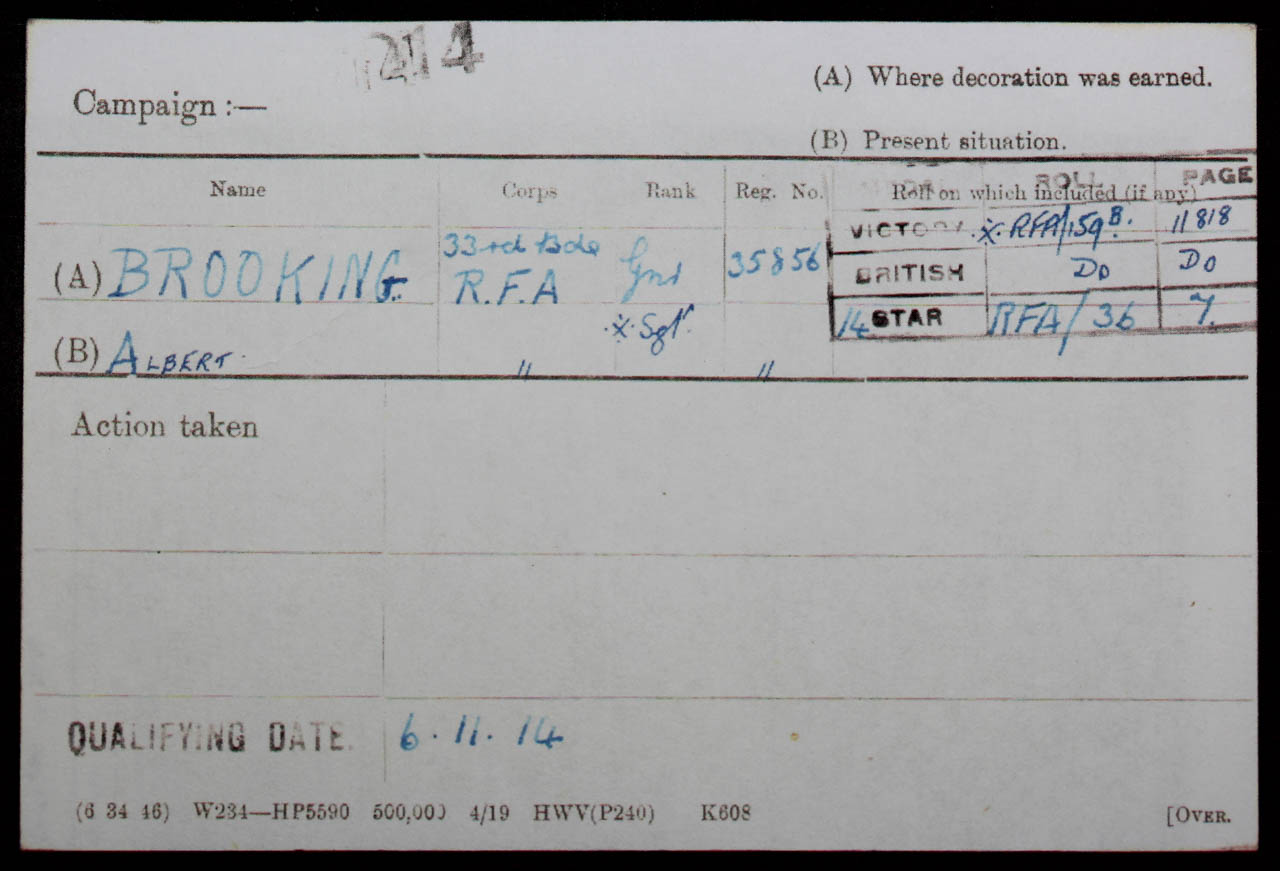 214
(A) Where decoration was earned.
Campaign :—
(B) Present situation.
Name Corps Rank Reg. No. Roll on which included (if any)
MEDAL ROLL PAGE
VICTORY ※ RFA/159B. 11818
(A) BROOKING. 33rd Bde R.F.A Gnr 35856
BRITISH Do Do
※ Sgt.
14 STAR RFA/36 7.
(B) ALBERT. " "
Action taken
QUALIFYING DATE. 6.11.14
(6 34 46) W234—HP5590 500,000 4/19 HWV(P240) K608 [OVER.